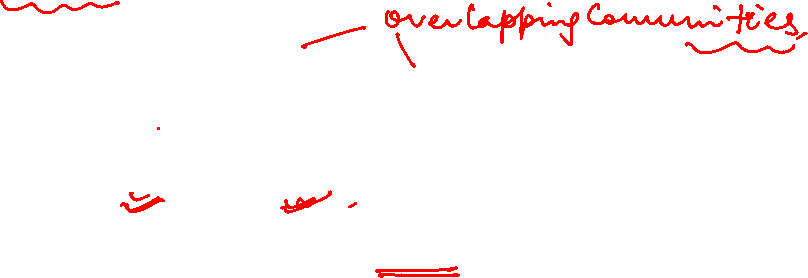 overlapping Communities